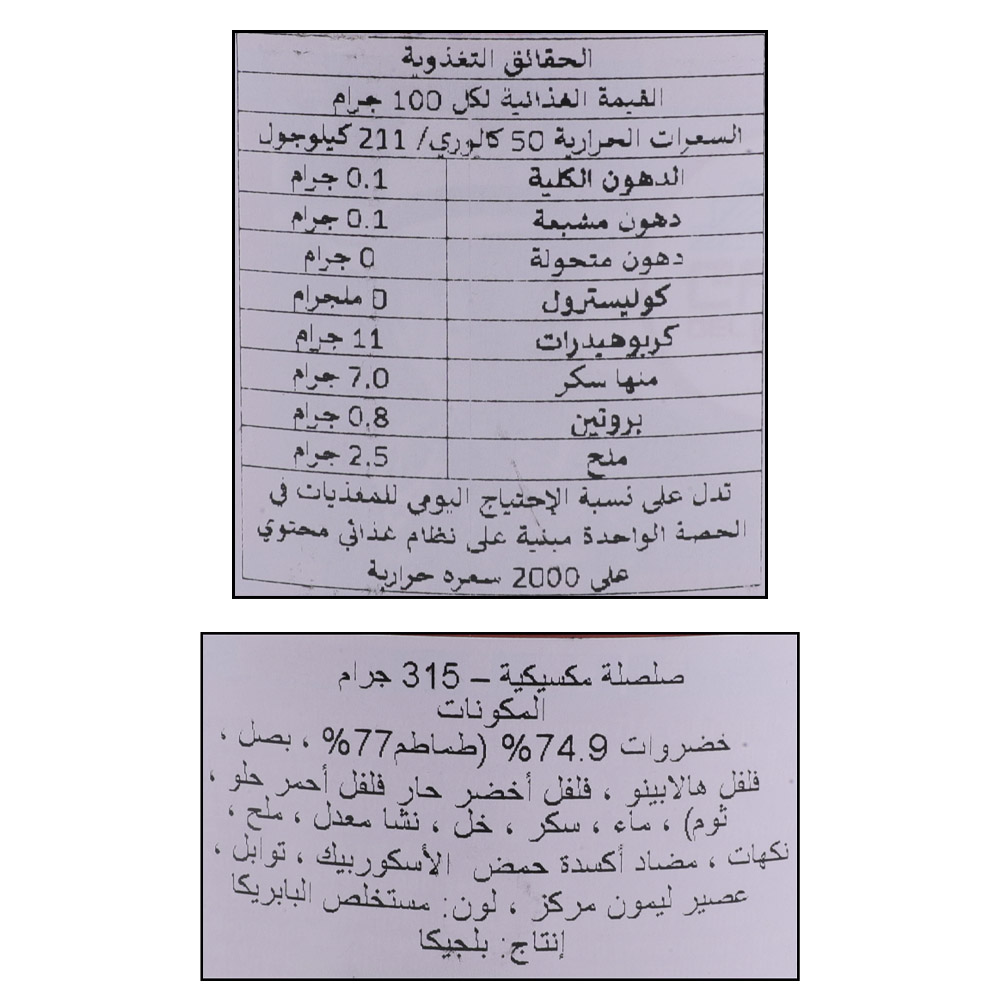 الحقائق التغذوية
القيمة الغذائية لكل 100 جرام
السعرات الحرارية 50 كالوري/ 211 كيلوجول
الدهون الكلية 0.1 جرام
دهون مشبعة 0.1 جرام
دهون متحولة 0 جرام
كوليسترول 0 ملجرام
كربوهيدرات 11 جرام
منها سكر 7.0 جرام
بروتين 0.8 جرام
ملح 2.5 جرام
تدل على نسبة الإحتياج اليومي للمغذيات في
الحصة الواحدة مبنية على نظام غذائي محتوي
على 2000 سعره حرارية
صلصلة مكسيكية – 315 جرام
المكونات
خضروات 74.9% (طماطم77% ، بصل ،
فلفل هالابينو ، فلفل أخضر حار فلفل أحمر حلو ،
ثوم) ، ماء ، سكر ، خل ، نشا معدل ، ملح ،
نكهات ، مضاد أكسدة حمض الأسكوربيك ، توابل ،
عصير ليمون مركز ، لون: مستخلص البابريكا
إنتاج: بلجيكا